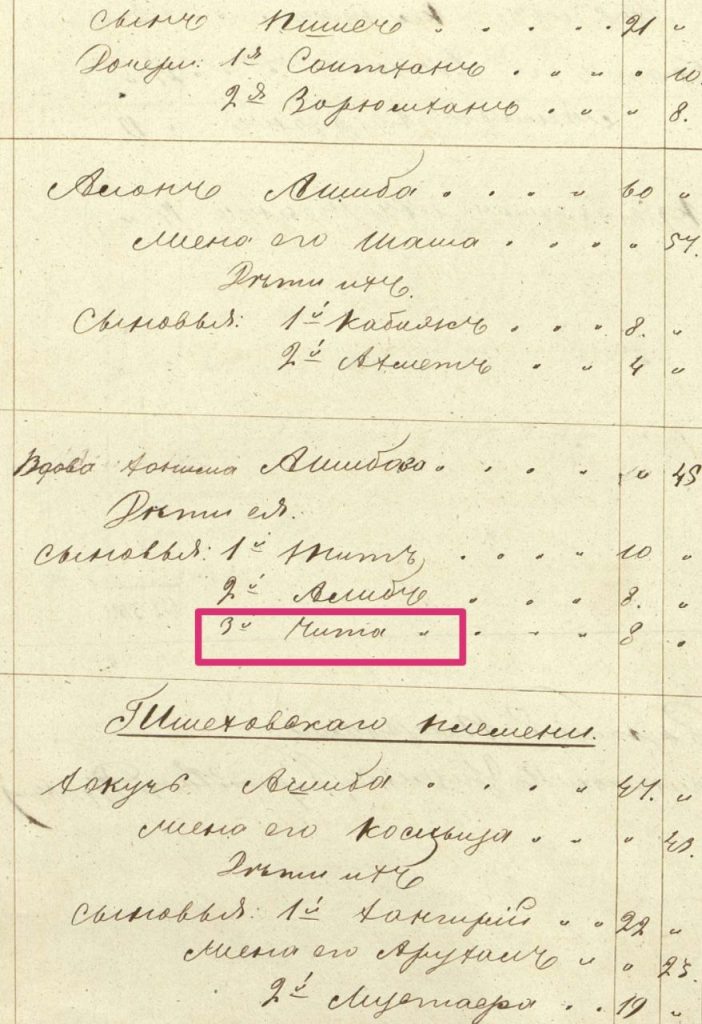 сынъ Пшечъ . . . . . 21 "
Дочери: 1я Саитханъ . " " " 10
2я Ворюмтханъ . " " 8.
Алонъ Ашиба . . . " 60 "
жена его Шаша . . . " " 57.
Дѣти ихъ
Сыновья: 1й Кабиякъ . . . 8. "
2й Ахметъ . " 4 "
Вдова Ашибова . . . . " 45
Дѣти ея.
сыновья: 1й Титъ . . . " 10 "
2й Алибъ . . . 8. "
3й Чита " . " " 8 .
Пшеховскаго племени.
Хакучъ Ашиба . . . " 47. "
жена его . . " 43.
Дѣти ихъ
сыновья: 1й Хангирій " " 22 "
жена его Арухамъ " " 25.
2й Мустафа . . 19 "